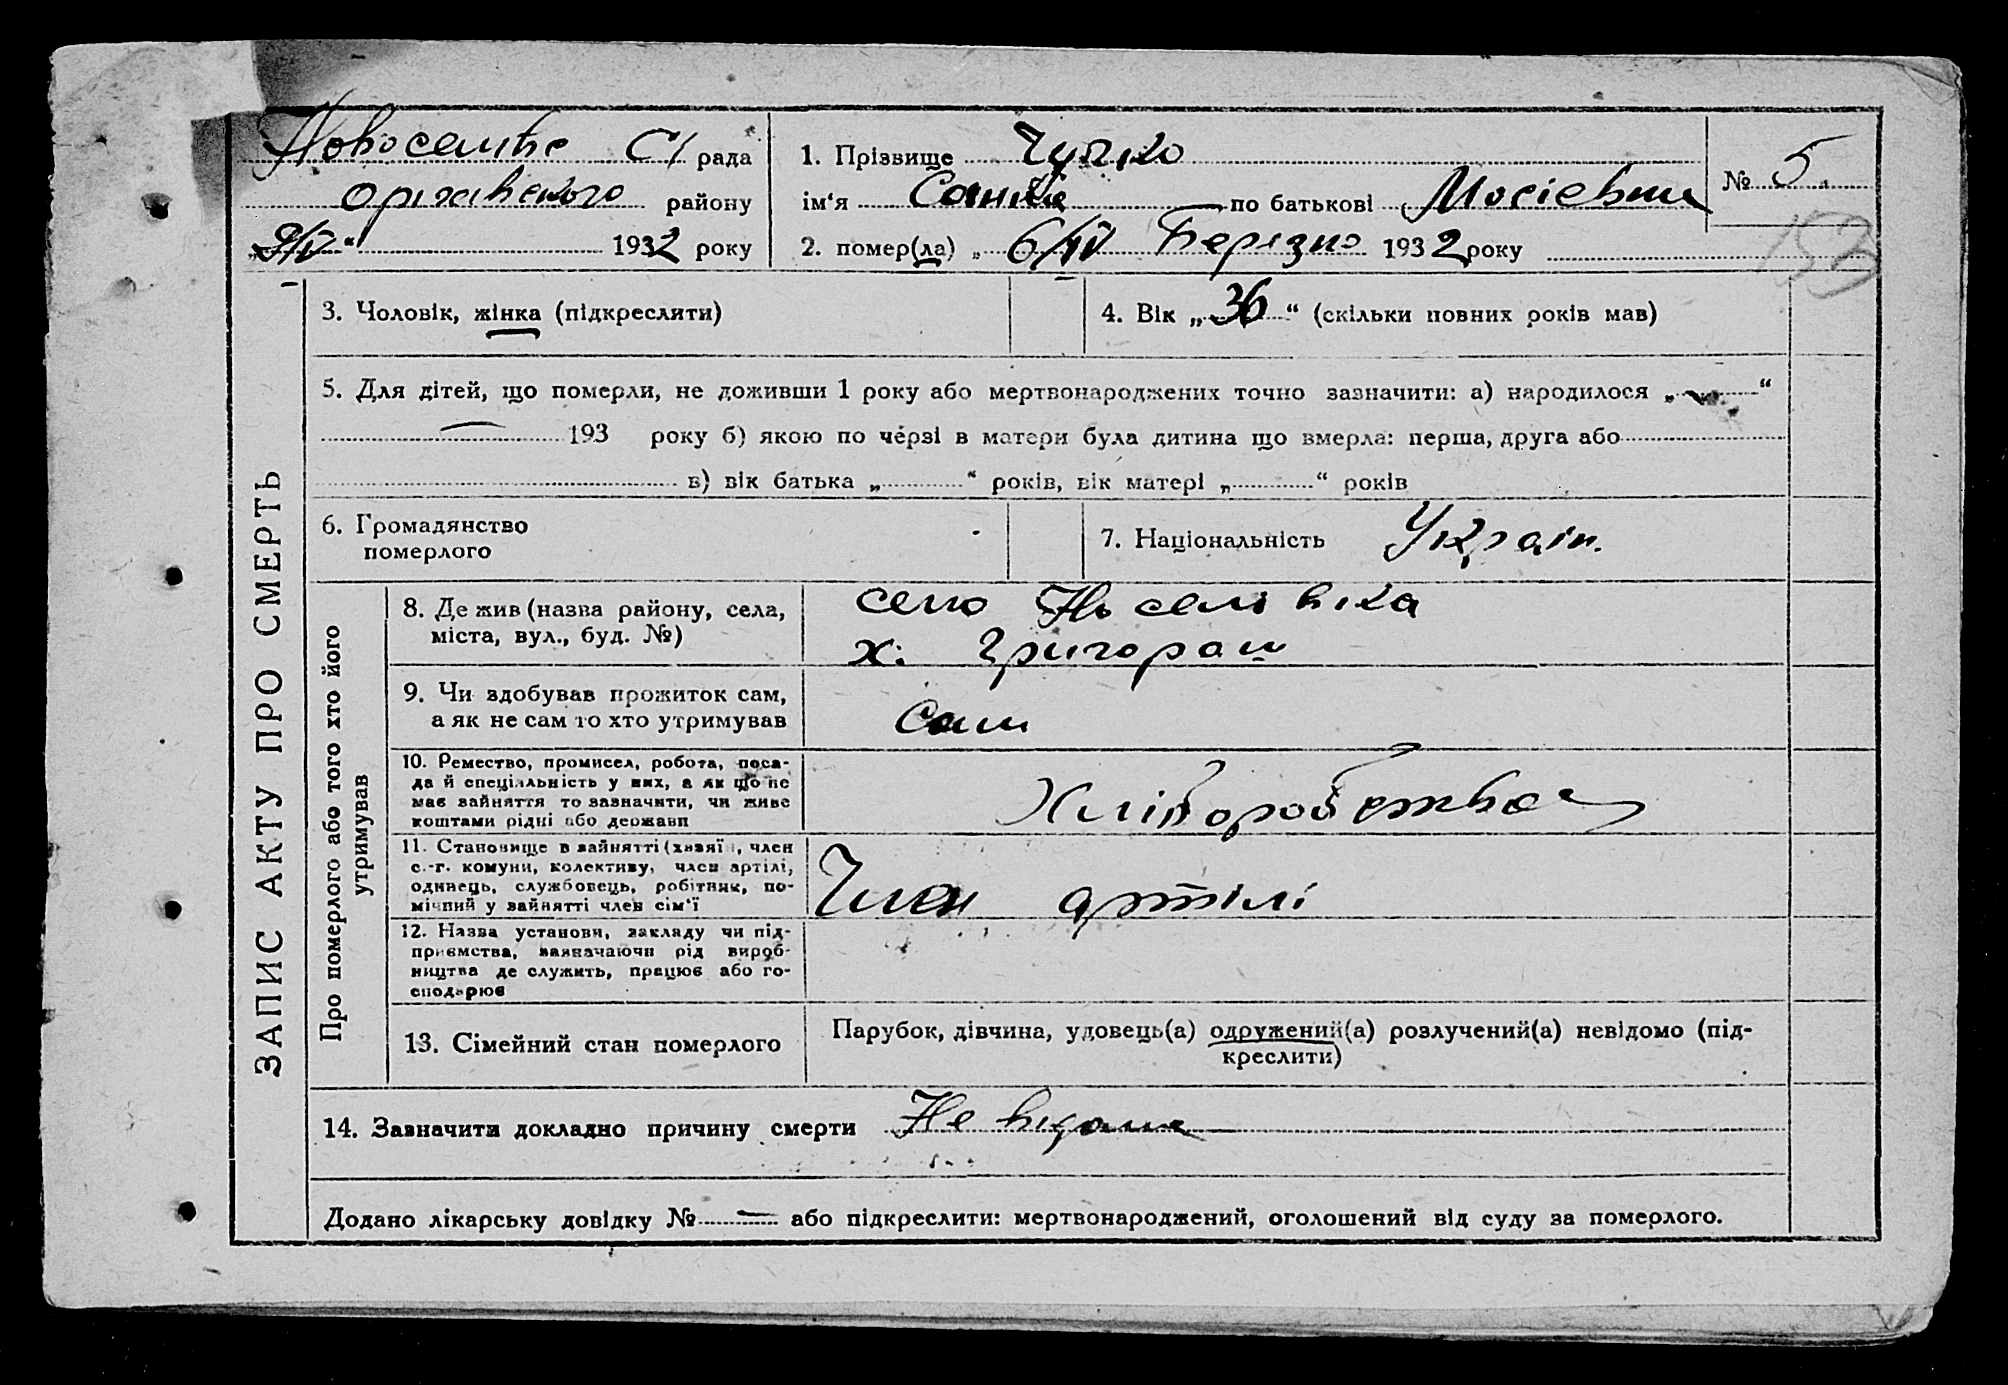 Новоселівс С/ рада
оржавського району
„9/IV“ 1932 року
1. Прізвище Чучко
ім‘я по батькові Мосіевна
2. помер(ла) „6/IV Березно 1932 року
№ 5
153
ЗАПИС АКТУ ПРО СМЕРТЬ
3. Чоловік, жінка (підкреслити)
4. Вік „36“ (скільки повних років мав)
5. Для дітей, що померли, не доживши 1 року або мертвонароджених точно зазначити: а) народилося „ “
193 року б) якою по черзі в матери була дитина що вмерла: перша, друга або
в) вік батька „ “ років, вік матері „ “ років
6. Громадянство
померлого
7. Національність Україн.
Про померлого або того хто його
утримував
8. Де жив (назва району, села,
міста, вул., буд. №)
село Н селівка
х. Григораш
9. Чи здобував прожиток сам,
а як не сам то хто утримував
Сам
10. Ремество, промисел, робота, поса-
да й спеціяльність у них, а як що не
має зайняття то зазначити, чи живе
коштами рідні або держави
Хліборобство
11. Становище в зайнятті (хазяїн, член
с.-г. комуни, колективу, член артілі,
одинець, службовець, робітник, по-
мічний у зайнятті член сім‘ї
Член артілі
12. Назва установи, закладу чи під-
приємства, зазначаючи рід вироб-
ництва де служить, працює або го-
сподарює
13. Сімейний стан померлого
Парубок, дівчина, удовець(а) одружений(а) розлучений(а) невідомо (під-
креслити)
14. Зазначити докладно причину смерти Не відома
Додано лікарську довідку № — або підкреслити: мертвонароджений, оголошений від суду за померлого.